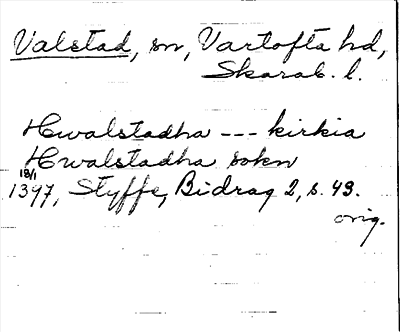 Valstad, sn, Vartofta hd,
Skarab. l.
Hwalstadha --- kirkia
Hwalstadha sokn
18/1
1397, Styffe, Bidrag 2, s. 43.
orig.